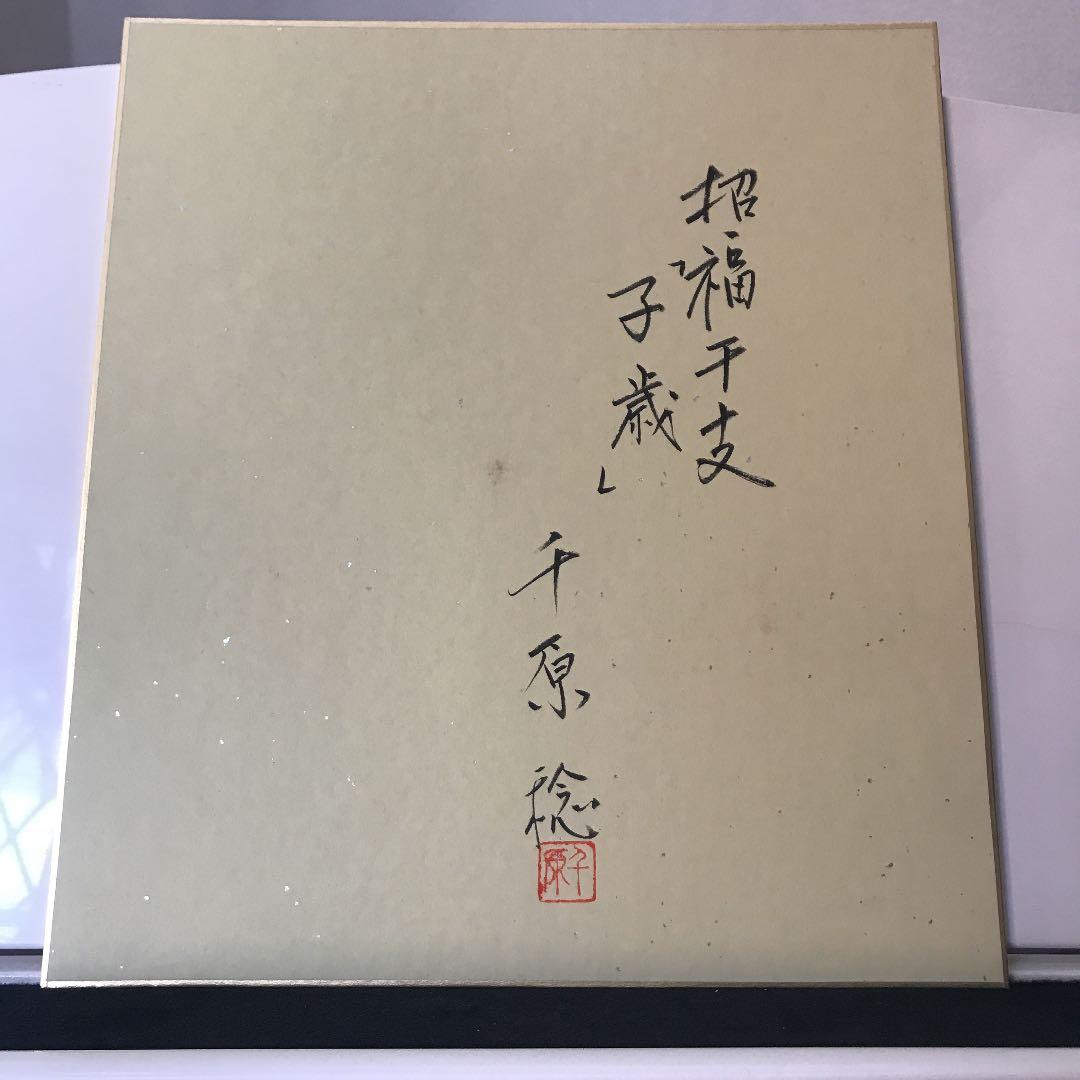 招福干支
「子歳」
千原稔
千原